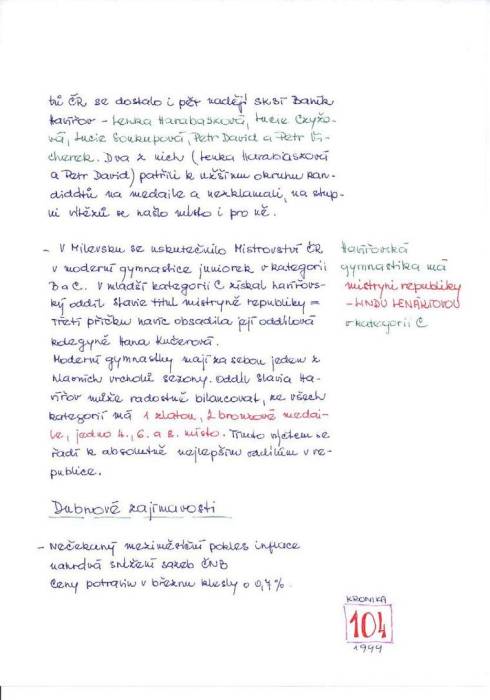 trů ČR se dostalo i pět nadějí SKSI Baník
Havířov - Lenka Harabašková, Lucie Czyžo-
vá, Lucie Soukupová, Petr David a Petr Vi-
cherek. Dva z nich (Lenka Harabiašková
a Petr David) patřili k užšímu okruhu kan-
didátů na medaile a nezklamali, na stup-
ni vítězů se našlo místo i pro ně.
- V Milevsku se uskutečnilo Mistrovství ČR
v moderní gymnastice juniorek v kategorii
B a C. V mladší kategorii C získal havířovs-
ký oddíl Slavie titul mistryně republiky =
Třetí příčku navíc obsadila její oddílová
kolegyně Hana Kučerová.
Moderní gymnastky mají za sebou jeden z
hlavních vrcholů sezony. Oddíl Slavia Ha-
vířov může radostně bilancovat, ze všech
kategorií má 1 zlatou, 2 bronzové medai-
le, jedno 4., 6. a 8. místo. Tímto výčtem se
řadí k absolutně nejlepším oddílům v re-
publice.
Havířovská
gymnastika má
mistryni republiky
- LINDU LENÁRTOVOU
v kategorii C
Dubnové zajímavosti
- Nečekaný meziměsíční pokles inflace
nahrává snížení sazeb ČNB
Ceny potravin v březnu klesly o 0,7%.
KRONIKA
104
1999